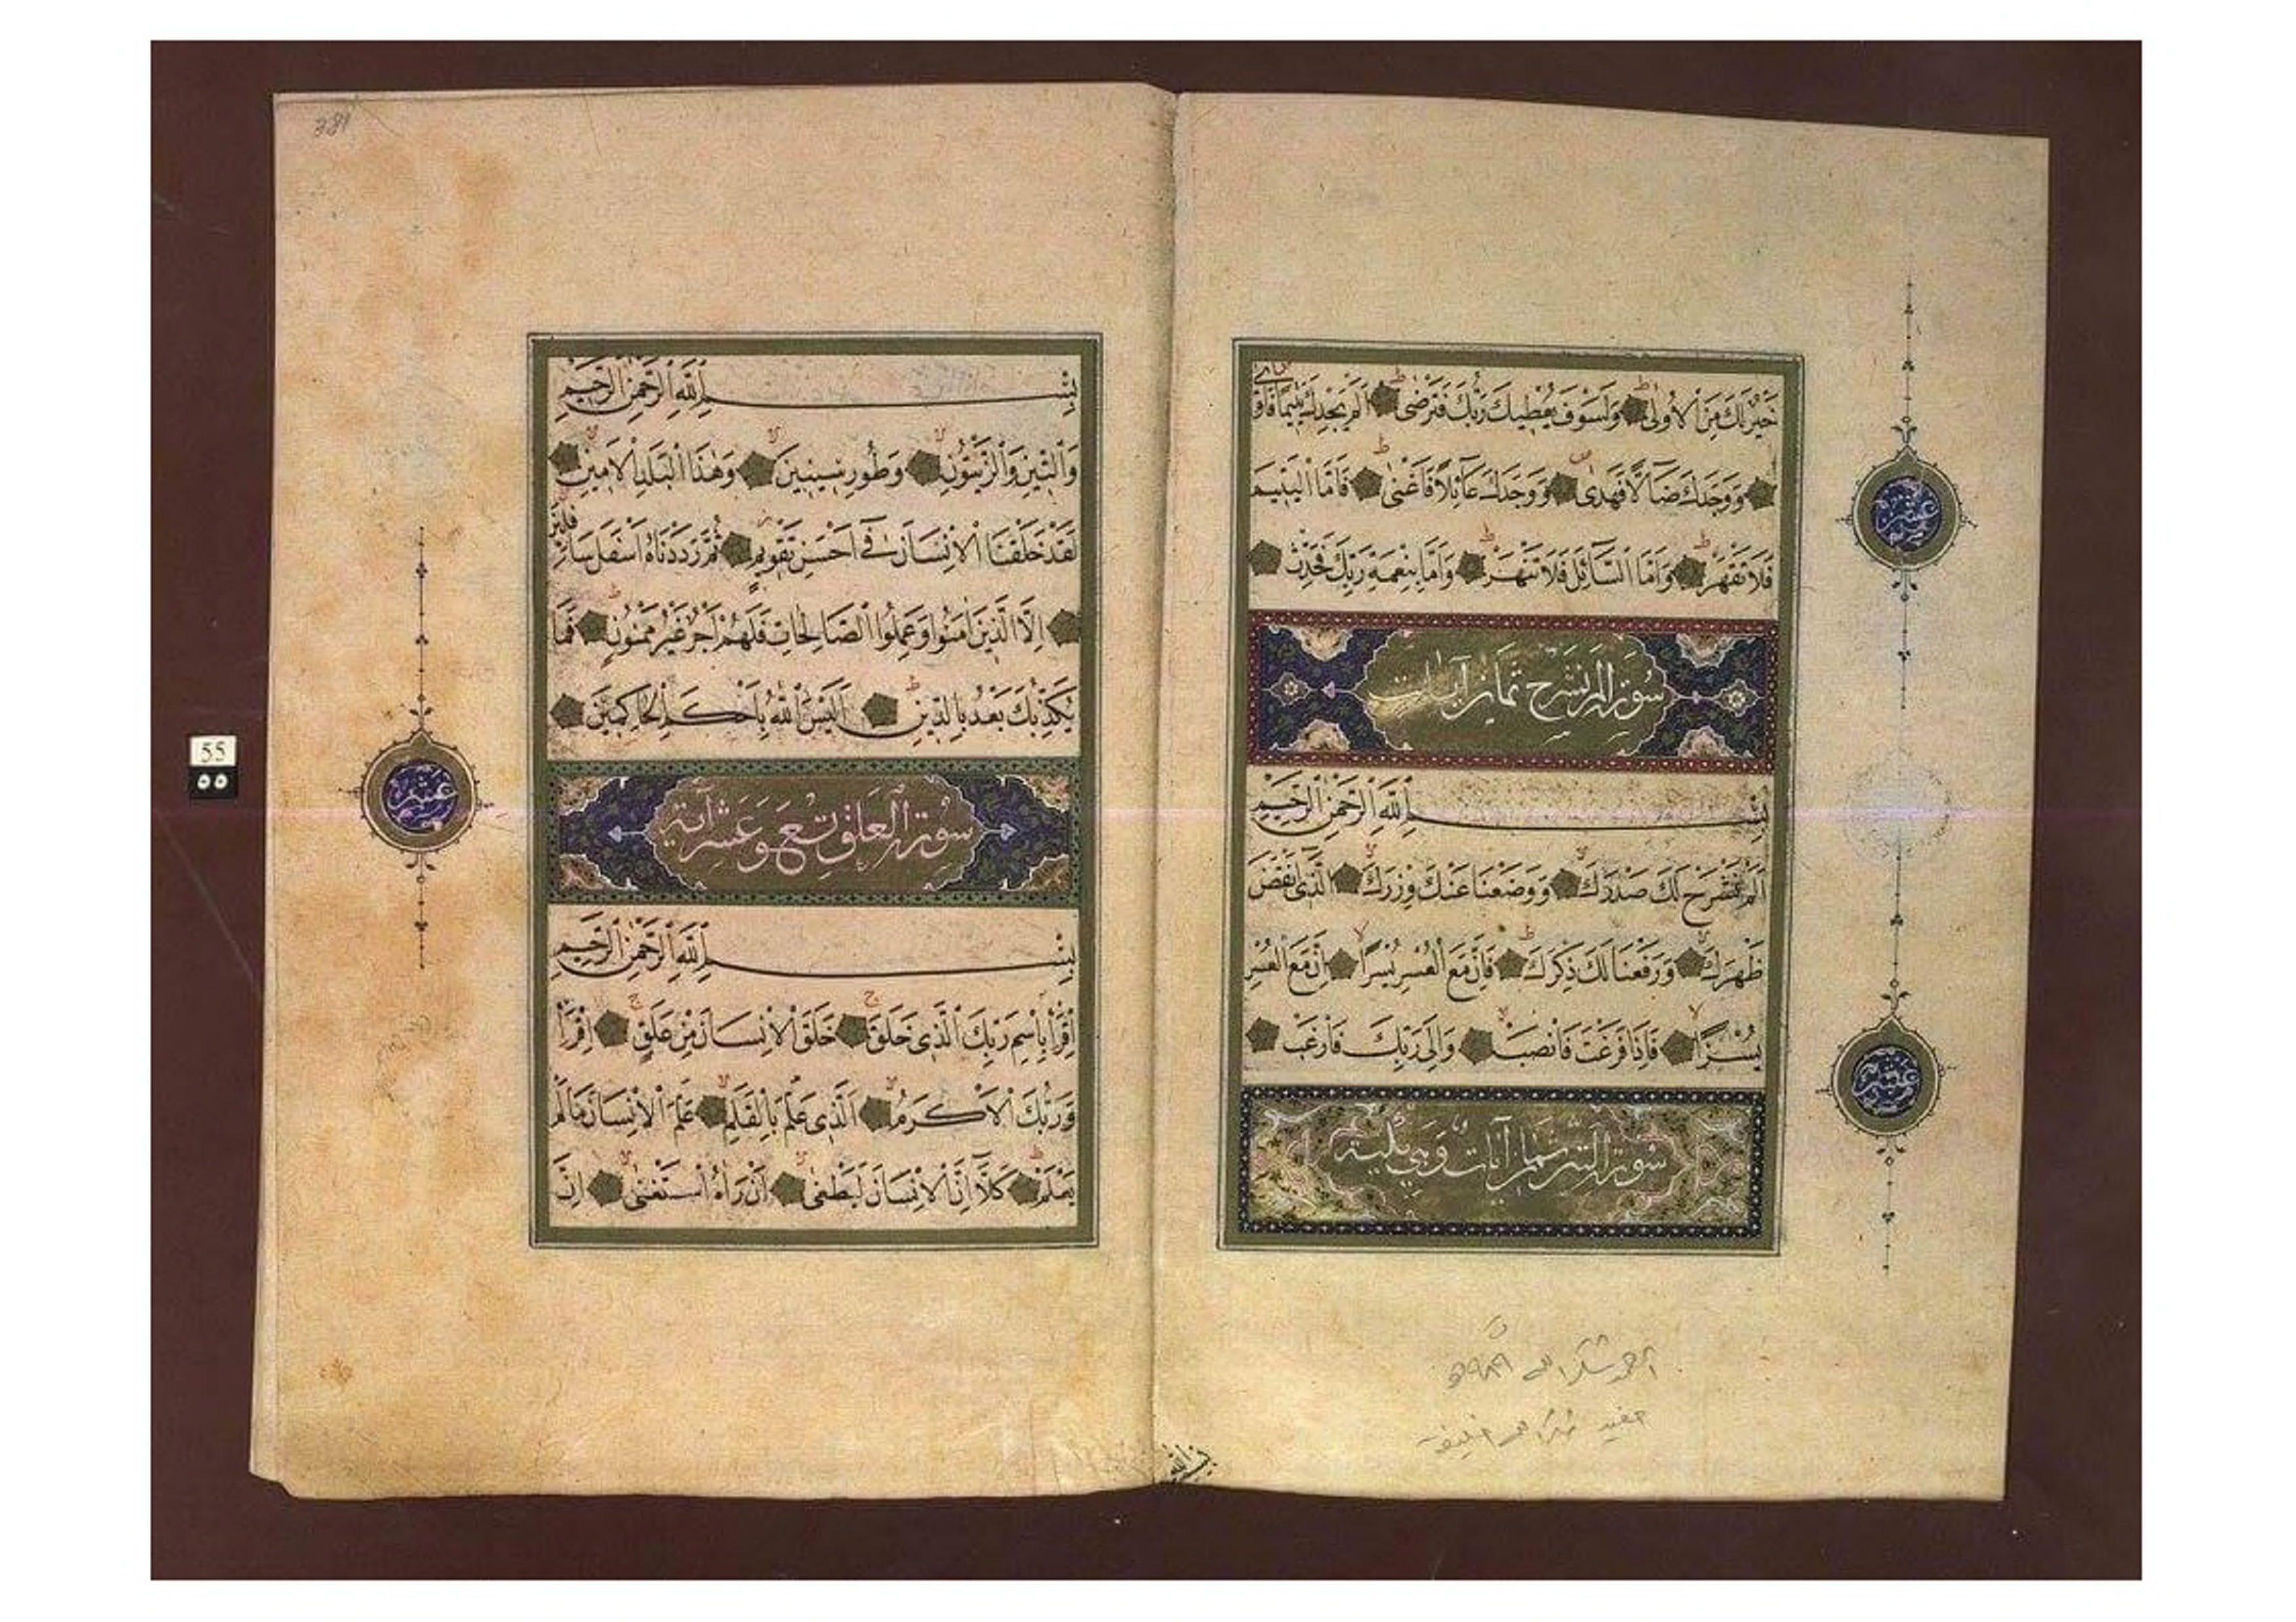 خَيْرٌ لَكَ مِنَ الْاُولٰى وَلَسَوْفَ يُعْطِيكَ رَبُّكَ فَتَرْضٰى اَلَمْ يَجِدْكَ يَتِيمًا فَاٰوٰى
وَوَجَدَكَ ضَآلًّا فَهَدٰى وَوَجَدَكَ عَآئِلًا فَاَغْنٰى فَاَمَّا الْيَتِيمَ
فَلَا تَقْهَرْ وَاَمَّا السَّآئِلَ فَلَا تَنْهَرْ وَاَمَّا بِنِعْمَةِ رَبِّكَ فَحَدِّثْ
سورة الم نشرح ثمان آيات
بِسْمِ اللّٰهِ الرَّحْمٰنِ الرَّحِيمِ
اَلَمْ نَشْرَحْ لَكَ صَدْرَكَ وَوَضَعْنَا عَنْكَ وِزْرَكَ الَّذِى اَنْقَضَ
ظَهْرَكَ وَرَفَعْنَا لَكَ ذِكْرَكَ فَاِنَّ مَعَ الْعُسْرِ يُسْرًا اِنَّ مَعَ الْعُسْرِ
يُسْرًا فَاِذَا فَرَغْتَ فَانْصَبْ وَاِلٰى رَبِّكَ فَارْغَبْ
سورة التين ثمان آيات وهي
عشر
عشر
بِسْمِ اللّٰهِ الرَّحْمٰنِ الرَّحِيمِ
وَالتِّينِ وَالزَّيْتُونِ وَطُورِ سِينِينَ وَهٰذَا الْبَلَدِ الْاَمِينِ
لَقَدْ خَلَقْنَا الْاِنْسَانَ فِى اَحْسَنِ تَقْوِيمٍ ثُمَّ رَدَدْنَاهُ اَسْفَلَ سَافِلِينَ
اِلَّا الَّذِينَ اٰمَنُوا وَعَمِلُوا الصَّالِحَاتِ فَلَهُمْ اَجْرٌ غَيْرُ مَمْنُونٍ فَمَا
يُكَذِّبُكَ بَعْدُ بِالدِّينِ اَلَيْسَ اللّٰهُ بِاَحْكَمِ الْحَاكِمِينَ
سورة العلق تسع وعشر آية
بِسْمِ اللّٰهِ الرَّحْمٰنِ الرَّحِيمِ
اِقْرَأْ بِاسْمِ رَبِّكَ الَّذِى خَلَقَ خَلَقَ الْاِنْسَانَ مِنْ عَلَقٍ اِقْرَأْ
وَرَبُّكَ الْاَكْرَمُ اَلَّذِى عَلَّمَ بِالْقَلَمِ عَلَّمَ الْاِنْسَانَ مَا لَمْ
يَعْلَمْ كَلَّا اِنَّ الْاِنْسَانَ لَيَطْغٰى اَنْ رَاٰهُ اسْتَغْنٰى اِنَّ
عشر
55
٥٥